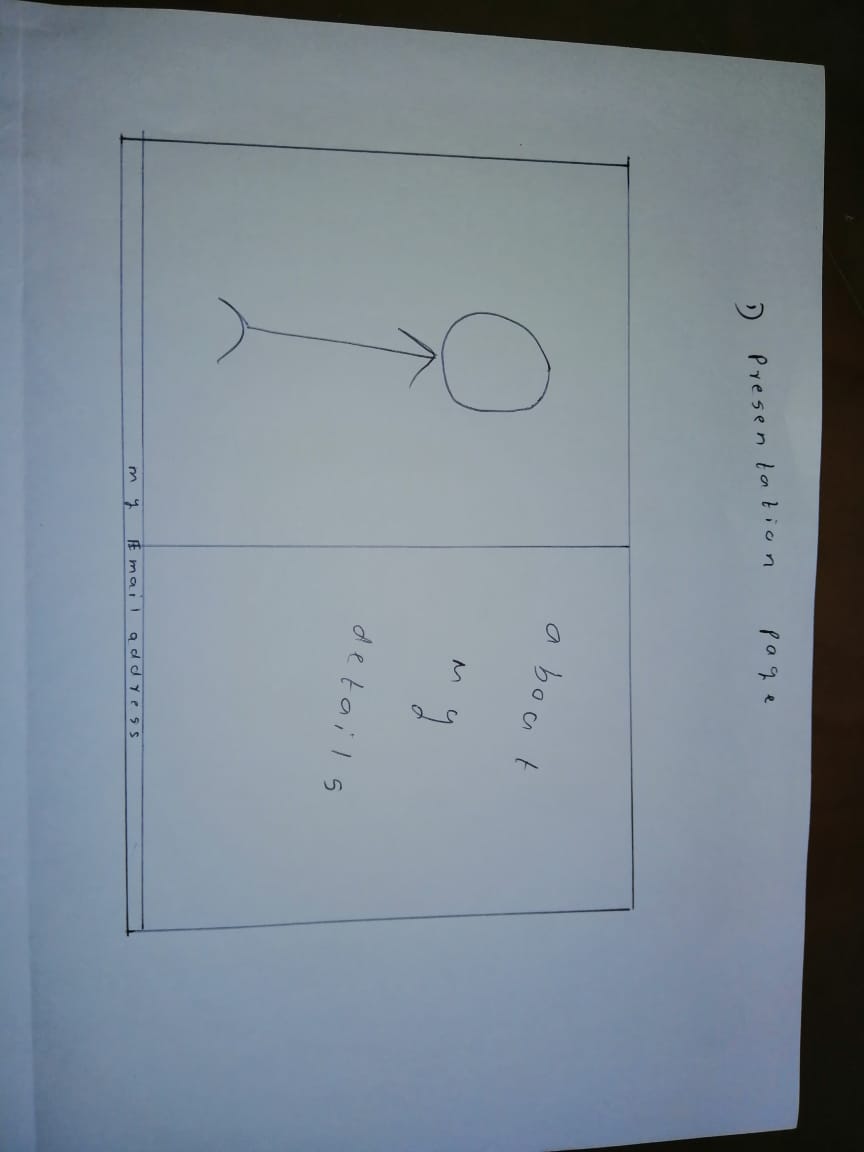 1) Presentation page
about
my
details
my Email address